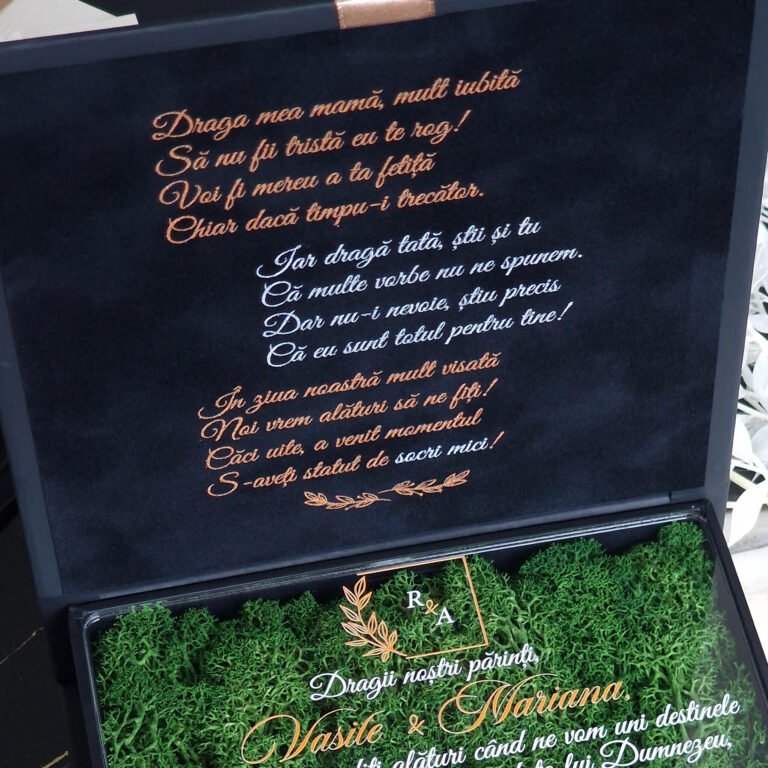 Draga mea mamă, mult iubită
Să nu fii tristă eu te rog!
Voi fi mereu a ta fetiță
Chiar dacă timpu-i trecător.
Iar dragă tată, știi și tu
Că multe vorbe nu ne spunem.
Dar nu-i nevoie, știu precis
Că eu sunt totul pentru tine!
În ziua noastră mult visată
Noi vrem alături să ne fiți!
Căci uite, a venit momentul
S-aveți statut de socri mici!
R & A
Dragii noștri părinți,
Vasile & Mariana
fiți alături când ne vom uni destinele
lui Dumnezeu,